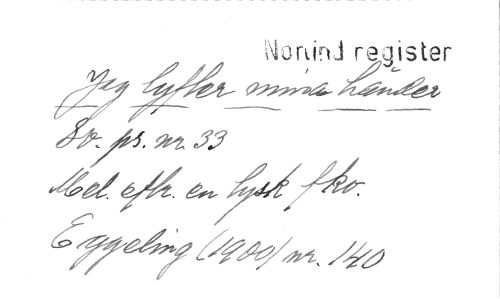 Nonind register
Jag lyfter mina händer
Sv. ps. nr. 33
Mel. eftr. en tysk fkv.
Eggeling (1900) nr. 140